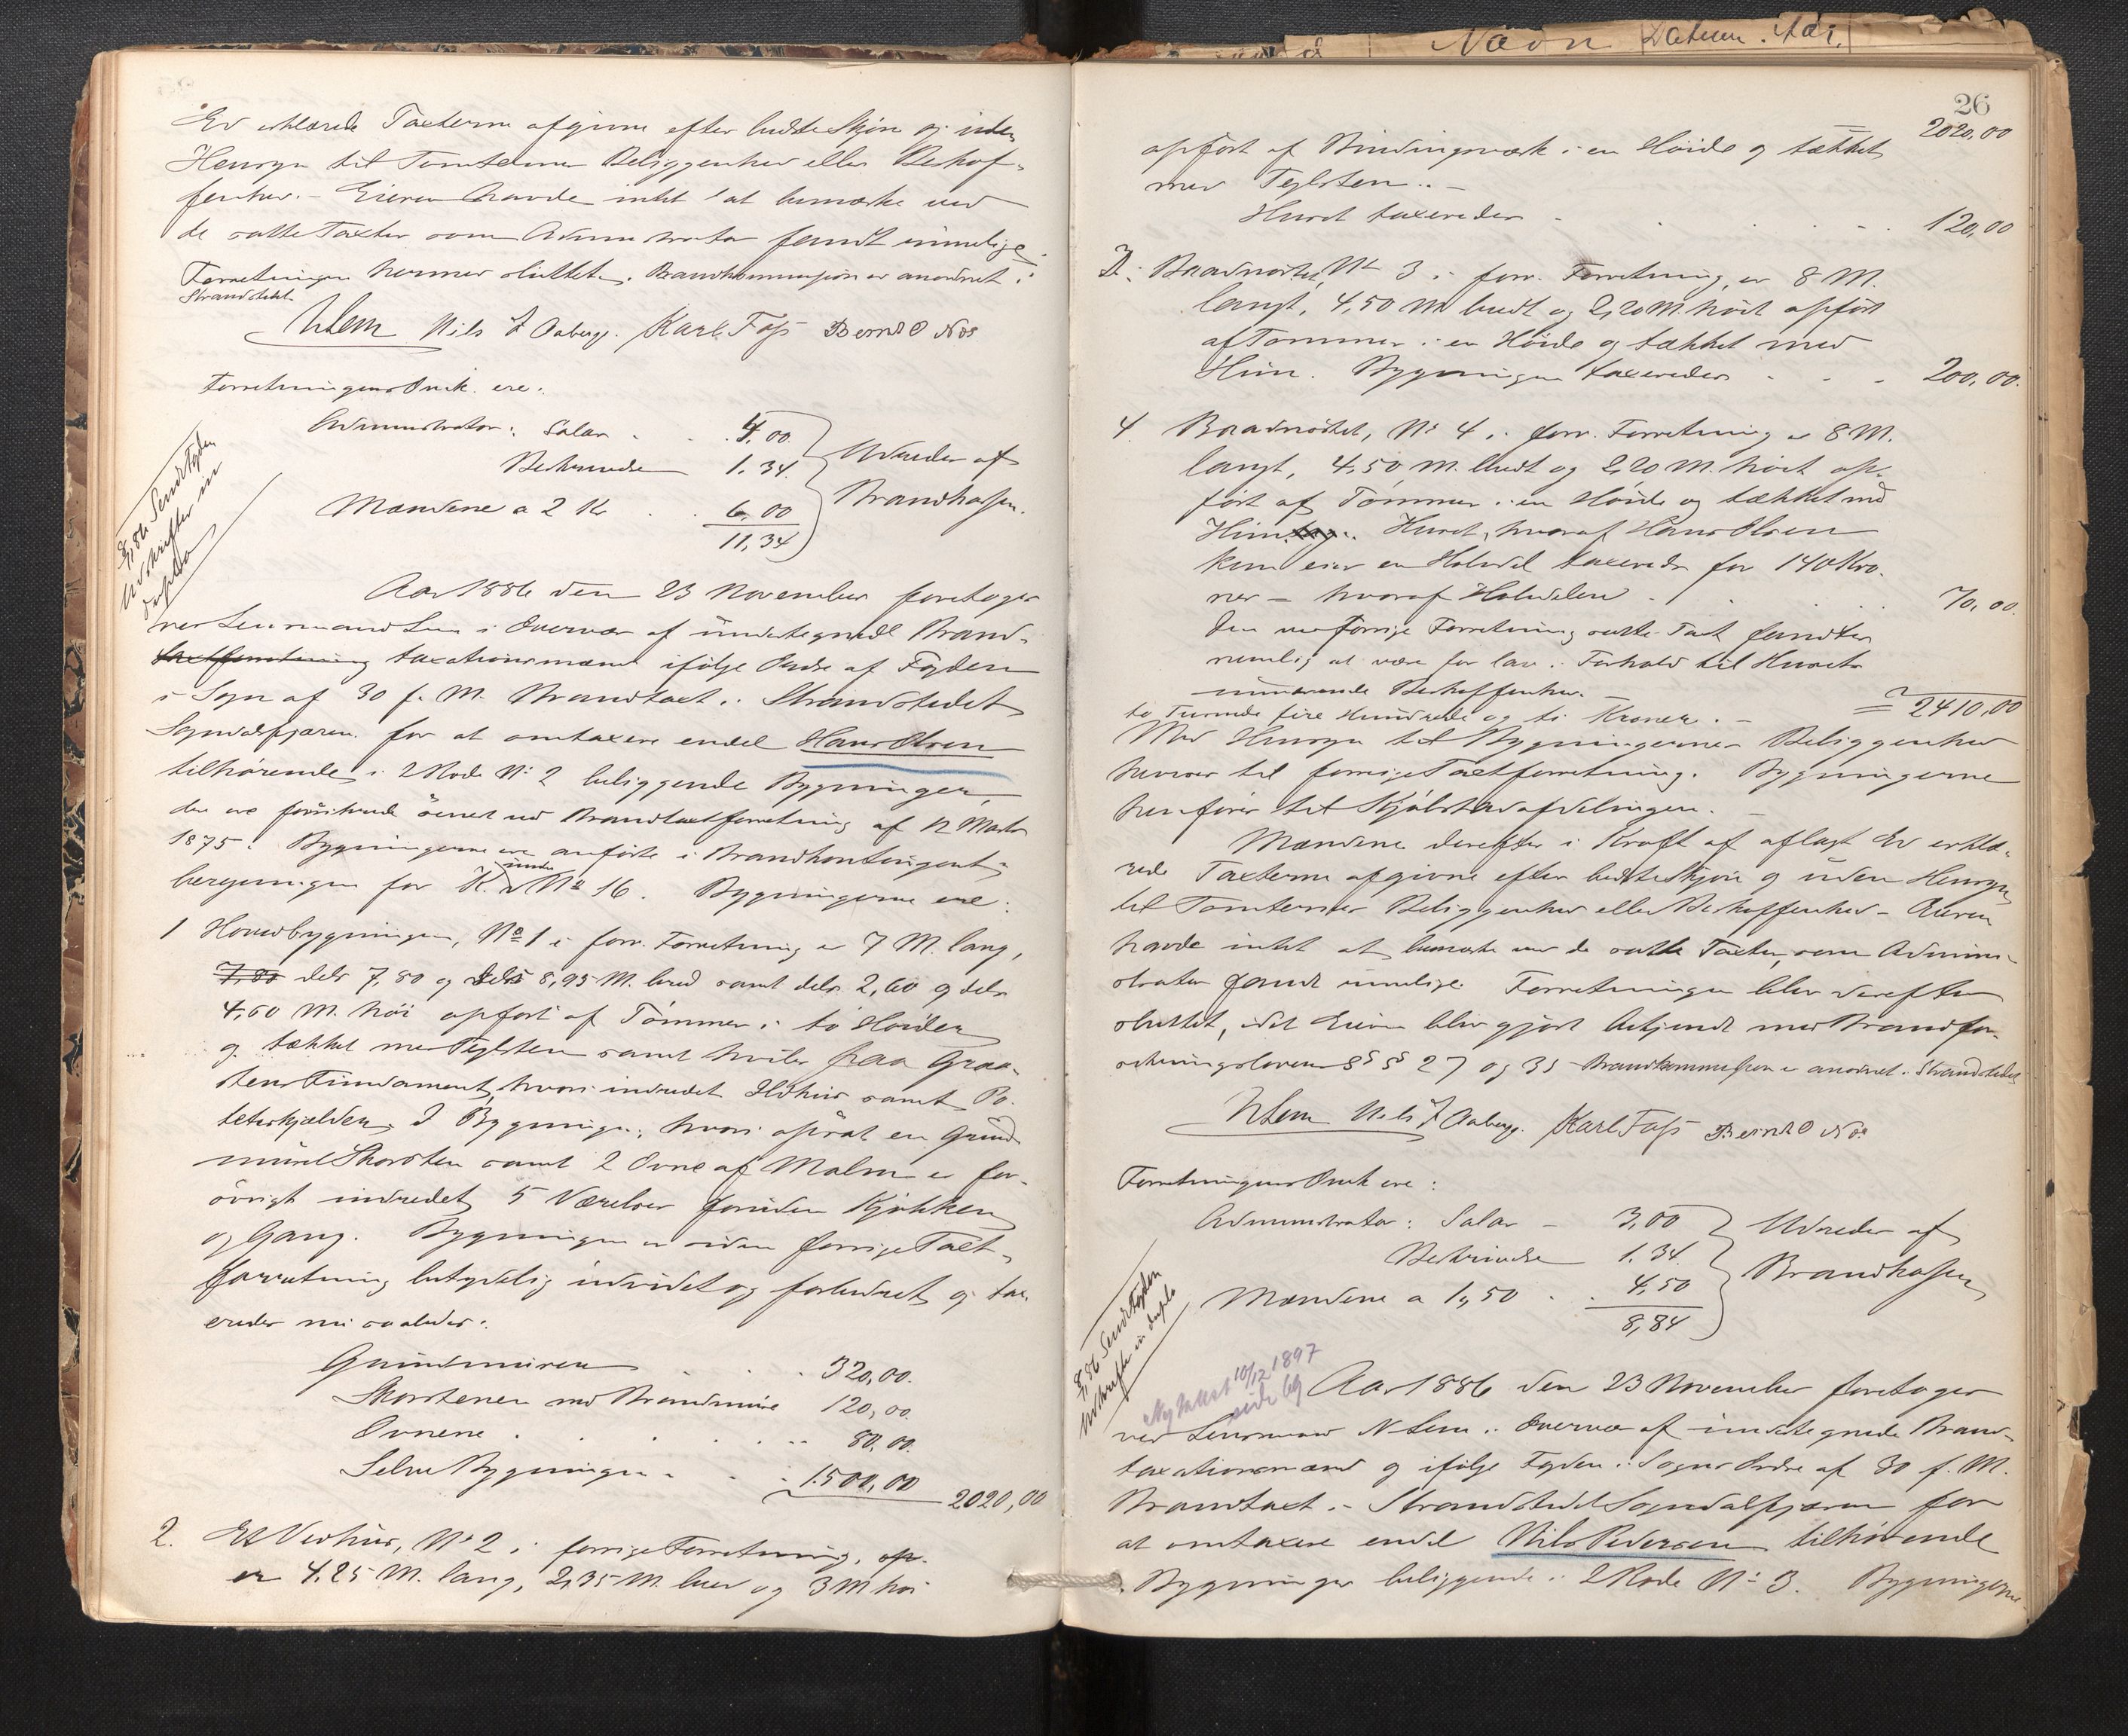 Ed erklærede Taxterne afgivne efter bedste Skjøn og uden
Hensyn til Tomternes Beliggenhed eller Beskaf-
fenhed. – Eieren havde intet at bemærke ved
de satte Taxter som Administrator fandt rimelige.
Forretningen hermed sluttet. Brandkommission er anordnet i
Strandstedet.
NLem Nils J Aaberge. Karl Foss Bernt O Nos
Forretningens Omk. ere:
Administrator: Salar . . 4,00
Beskrivelse 1.34
Mændene a 2 Kr . . 6,00
11,34
Udredes af
Brandkassen.
86 Sendt Fogden
Udskrifter in
duplo
Aar 1886 den 23 November foretoges
ved Lensmand Lem i Overvær af undertegnede Brand-
taxtforretning taxationsmænd ifølge Ordre af Fogden
i Sogn af 30 f. M. Brandtaxt i Strandstedet
Sogndalsfjæren for at omtaxere endel Hans Olsen
tilhørende i 2 Rode No 2 beliggende Bygninger,
der ere forsikrede senest ved Brandtaxtforretning af 12 Marts
1875. Bygningerne ere anførte i Brandkontingents-
beregningen for K. under No 16. Bygningerne ere:
1 Hovedbygningen, No 1 i forr. Forretning er 7 M. lang,
7,80 dels 7,80 og dels 8,95 M. bred samt dels 2,60 og dels
4,60 M. høi opført af Tømmer i to Høider
og tækket med Teglsten samt hviler paa Graa-
stens Fundament, hvori indredet Ildhus samt Po-
tetekjelder. I Bygningen, hvori opsat en Grund-
muret Skorsten samt 2 Ovne af Malm er for-
øvrigt indredet 5 Værelser foruden Kjøkken
og Gang. Bygningen er siden forrige Taxt-
forretning betydelig udvidet og forbedret og tax-
eredes nu saaledes:
Grundmuren . . . 320,00.
Skorstenen med Brandmure 120,00.
Ovnene . . . . . 80.00.
Selve Bygningen . . 1500,00 2020,00
2. Et Vedhus, No 2 i forrige Forretning, op-
er 4.25 M. lang, 2,35 M. bred og 3 M høi
Navn Datum. Aar.
26
2020,00
opført af Bindingsværk i en Høide og tækket
med Teglsten. –
Huset taxeredes . . . . . 120,00
3. Baadnøstet, No 3 i forr. Forretning, er 8 M.
langt, 4,50 M bredt og 2,20 M. høit opført
af Tømmer i en Høide og tækket med
Him. Bygningen taxeredes . . . 200,00.
4. Baadnøstet, No 4 i forr. Forretning er 8 M.
langt, 4,50 M. bredt og 2,20 M. høit op-
ført af Tømmer i en Høide og tækket med
Him. Huset, hvoraf Hans Olsen
kun eier en Halvdel taxeredes for 140 Kro-
ner – hvoraf Halvdelen . . . . 70,00.
Den ved forrige Forretning satte Taxt fandtes
nemlig at være for lav i Forhold til Husets
nuværende Beskaffenhed. –
to Tusinde fire Hundrede og ti Kroner. – = 2410,00
Med Hensyn til Bygningernes Beliggenhed
henvises til forrige Taxtforretning. Bygningerne
henføres til Kjøbstadafdelingen. –
Mændene derefter i Kraft af aflagt Ed erklæ-
rede Taxterne afgivne efter bedste Skjøn og uden Hensyn
til Tomternes Beliggenhed eller Beskaffenhed – Eieren
havde intet at bemærke ved de satte Taxter, som Admini-
strator fandt rimelige. Forretningen blev derefter
sluttet, idet Eieren blev gjort bekjendt med Brandfor-
sikringsloven §§§ 27 og 35 – Brandkommission er anordnet i Strandstedet
NLem Nils J Aaberge. Karl Foss Bernt O Nos
Forretningens Omk ere:
Administrator: Salar – 3,00
Beskrivelse 1.34
Mændene a 1,50 . . 4,50
8,84
Udredes af
Brandkassen
86 Sendt Fogden
Udskrifter in duplo
Ny takst 10/12 1897
side 69
Aar 1886 den 23 November foretoges
ved Lensmand N Lem i Overvær af undertegnede Brand-
taxationsmænd og ifølge Fogden i Sogns Ordre af 30 f. M.
Brandtaxt i Strandstedet Sogndalsfjæren for
at omtaxere endel Nils Pedersen tilhørende
Bygninger beliggende i 2 Rode No 3. Bygningerne